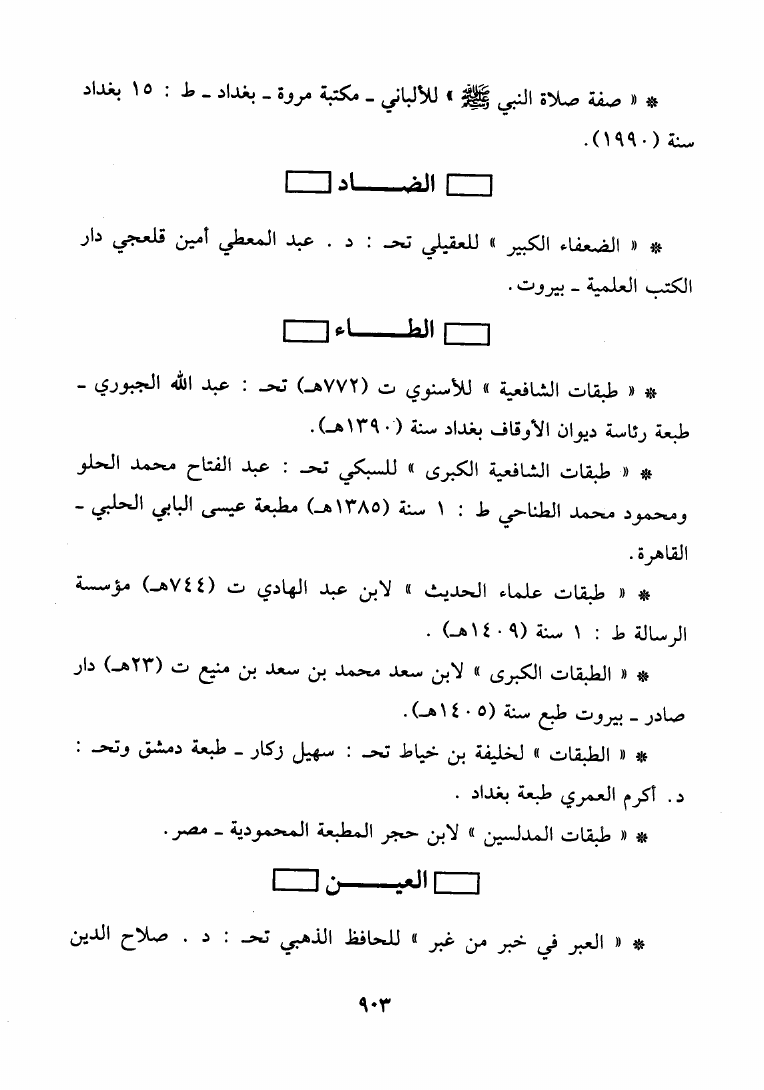 * « صفة صلاة النبي ﷺ » للألباني ـ مكتبة مروة ـ بغداد ـ ط : ١٥ بغداد
سنة (١٩٩٠).
الضــاد
* « الضعفاء الكبير » للعقيلي تحـ : د . عبد المعطي أمين قلعجي دار
الكتب العلمية ـ بيروت.
الطــاء
* « طبقات الشافعية » للأسنوي ت (٧٧٢هـ) تحـ : عبد الله الجبوري ـ
طبعة رئاسة ديوان الأوقاف بغداد سنة (١٣٩٠هـ).
* « طبقات الشافعية الكبرى » للسبكي تحـ : عبد الفتاح محمد الحلو
ومحمود محمد الطناحي ط : ١ سنة (١٣٨٥هـ) مطبعة عيسى البابي الحلبي ـ
القاهرة.
* « طبقات علماء الحديث » لابن عبد الهادي ت (٧٤٤هـ) مؤسسة
الرسالة ط : ١ سنة (١٤٠٩هـ) .
* « الطبقات الكبرى » لابن سعد محمد بن سعد بن منيع ت (٢٣هـ) دار
صادر ـ بيروت طبع سنة (١٤٠٥هـ).
* « الطبقات » لخليفة بن خياط تحـ : سهيل زكار ـ طبعة دمشق وتحـ :
د. أكرم العمري طبعة بغداد .
* « طبقات المدلسين » لابن حجر المطبعة المحمودية ـ مصر.
العيــن
* « العبر في خبر من غبر » للحافظ الذهبي تحـ : د . صلاح الدين
٩٠٣